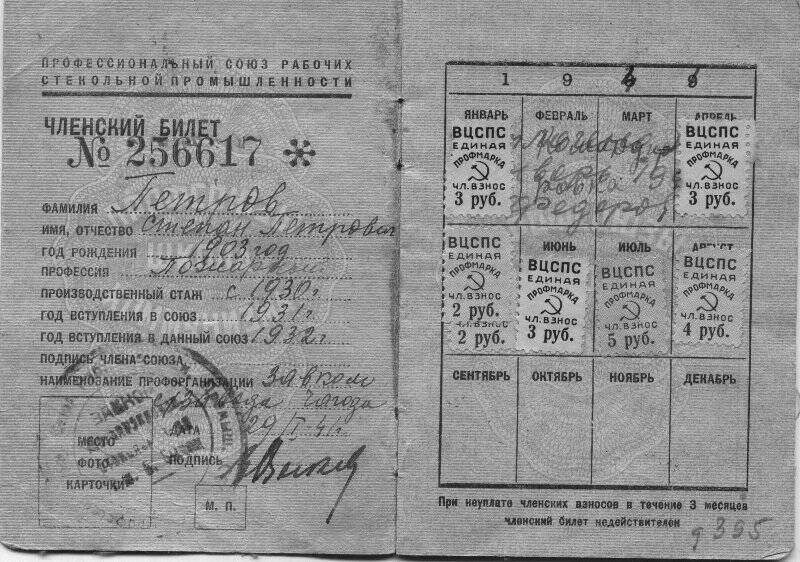 ПРОФЕССИОНАЛЬНЫЙ СОЮЗ РАБОЧИХ
СТЕКОЛЬНОЙ ПРОМЫШЛЕННОСТИ
ЧЛЕНСКИЙ БИЛЕТ
№ 256617 *
ФАМИЛИЯ Петров
ИМЯ, ОТЧЕСТВО Степан Петрович
ГОД РОЖДЕНИЯ 1903 год
ПРОФЕССИЯ Пожарный
ПРОИЗВОДСТВЕННЫЙ СТАЖ с 1930 г
ГОД ВСТУПЛЕНИЯ В СОЮЗ 1931 г
ГОД ВСТУПЛЕНИЯ В ДАННЫЙ СОЮЗ 1932 г
ПОДПИСЬ ЧЛЕНА СОЮЗА
НАИМЕНОВАНИЕ ПРОФОРГАНИЗАЦИИ Завком
Чагода
ДАТА 29
МЕСТО
ФОТО
КАРТОЧКИ
ПОДПИСЬ
М. П.
1 9 4
ЯНВАРЬ ФЕВРАЛЬ МАРТ АПРЕЛЬ
ВЦСПС
ЕДИНАЯ
ПРОФМАРКА
ЧЛ. ВЗНОС
3 руб.
ВЦСПС
ЕДИНАЯ
ПРОФМАРКА
ЧЛ. ВЗНОС
3 руб.
ИЮНЬ ИЮЛЬ АВГУСТ
ВЦСПС
ЕДИНАЯ
ПРОФМАРКА
ЧЛ. ВЗНОС
2 руб.
ЧЛ. ВЗНОС
2 руб.
ВЦСПС
ЕДИНАЯ
ПРОФМАРКА
ЧЛ. ВЗНОС
3 руб.
ВЦСПС
ЕДИНАЯ
ПРОФМАРКА
ЧЛ. ВЗНОС
5 руб.
ВЦСПС
ЕДИНАЯ
ПРОФМАРКА
ЧЛ. ВЗНОС
4 руб.
СЕНТЯБРЬ ОКТЯБРЬ НОЯБРЬ ДЕКАБРЬ
При неуплате членских взносов в течение 3 месяцев
членский билет недействителен